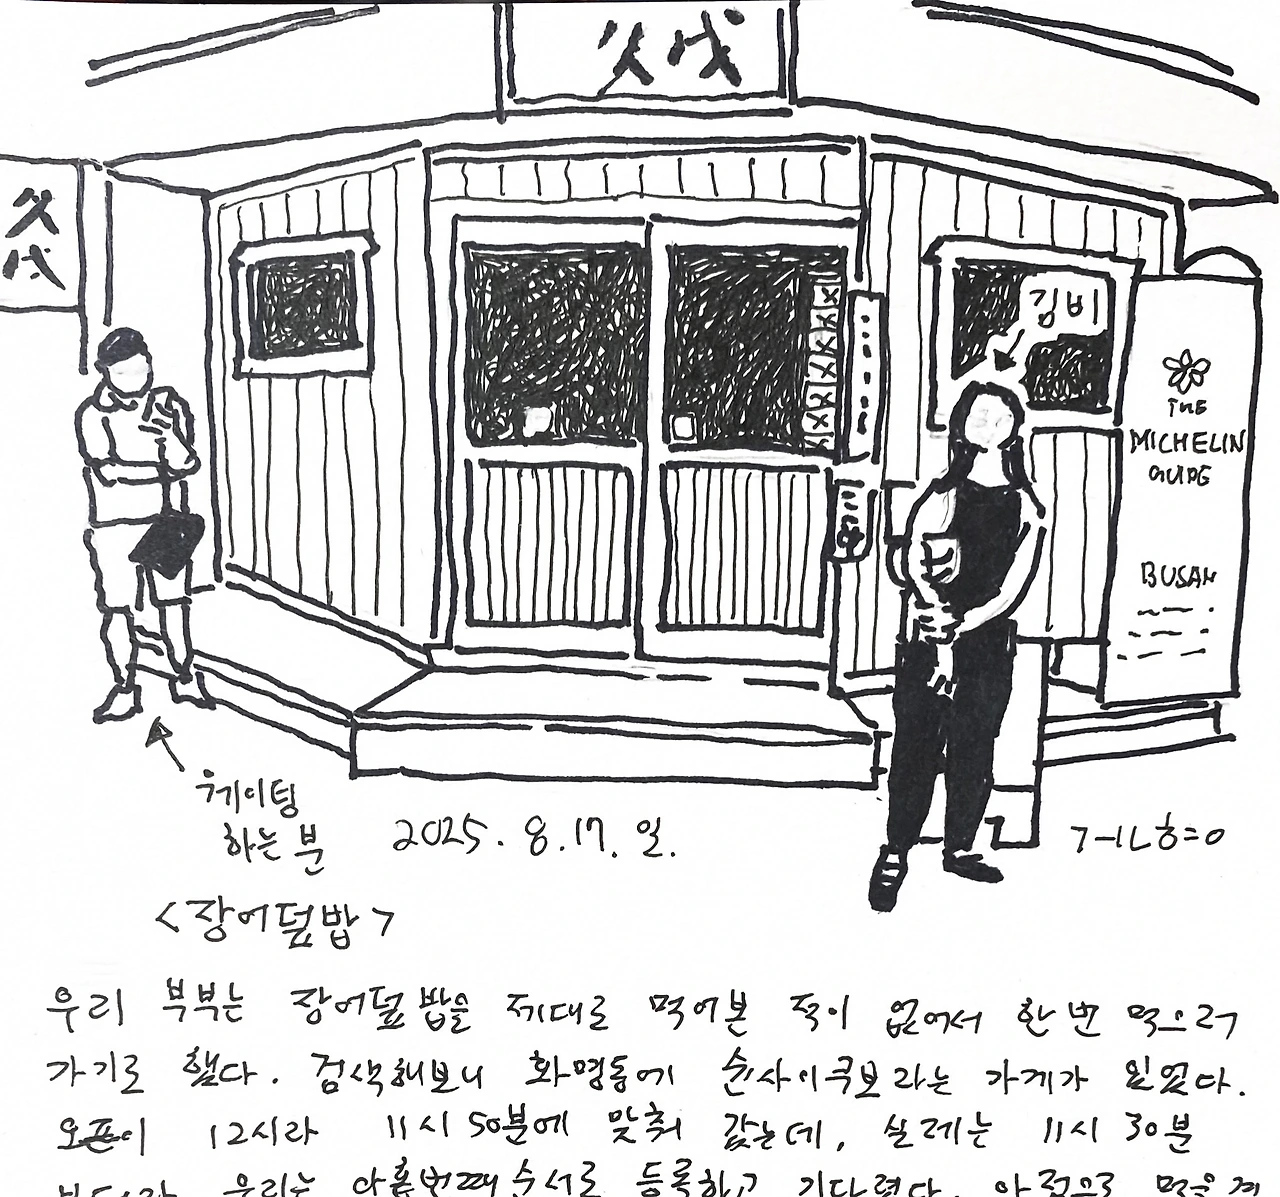 久
久
김비
THE
MICHELIN
GUIDE
BUSAN
웨이팅
하는 분
2025. 8. 17. 일.
<장어덮밥>
우리 부부는 장어덮밥을 제대로 먹어본 적이 없어서 한번 먹으러
가기로 했다. 검색해보니 화명동에 순사이쿠보라는 가게가 있었다.
오픈이 12시라 11시 50분에 맞춰 갔는데, 실제는 11시 30분
우리는 아홉번째 순서로 등록하고 기다렸다.